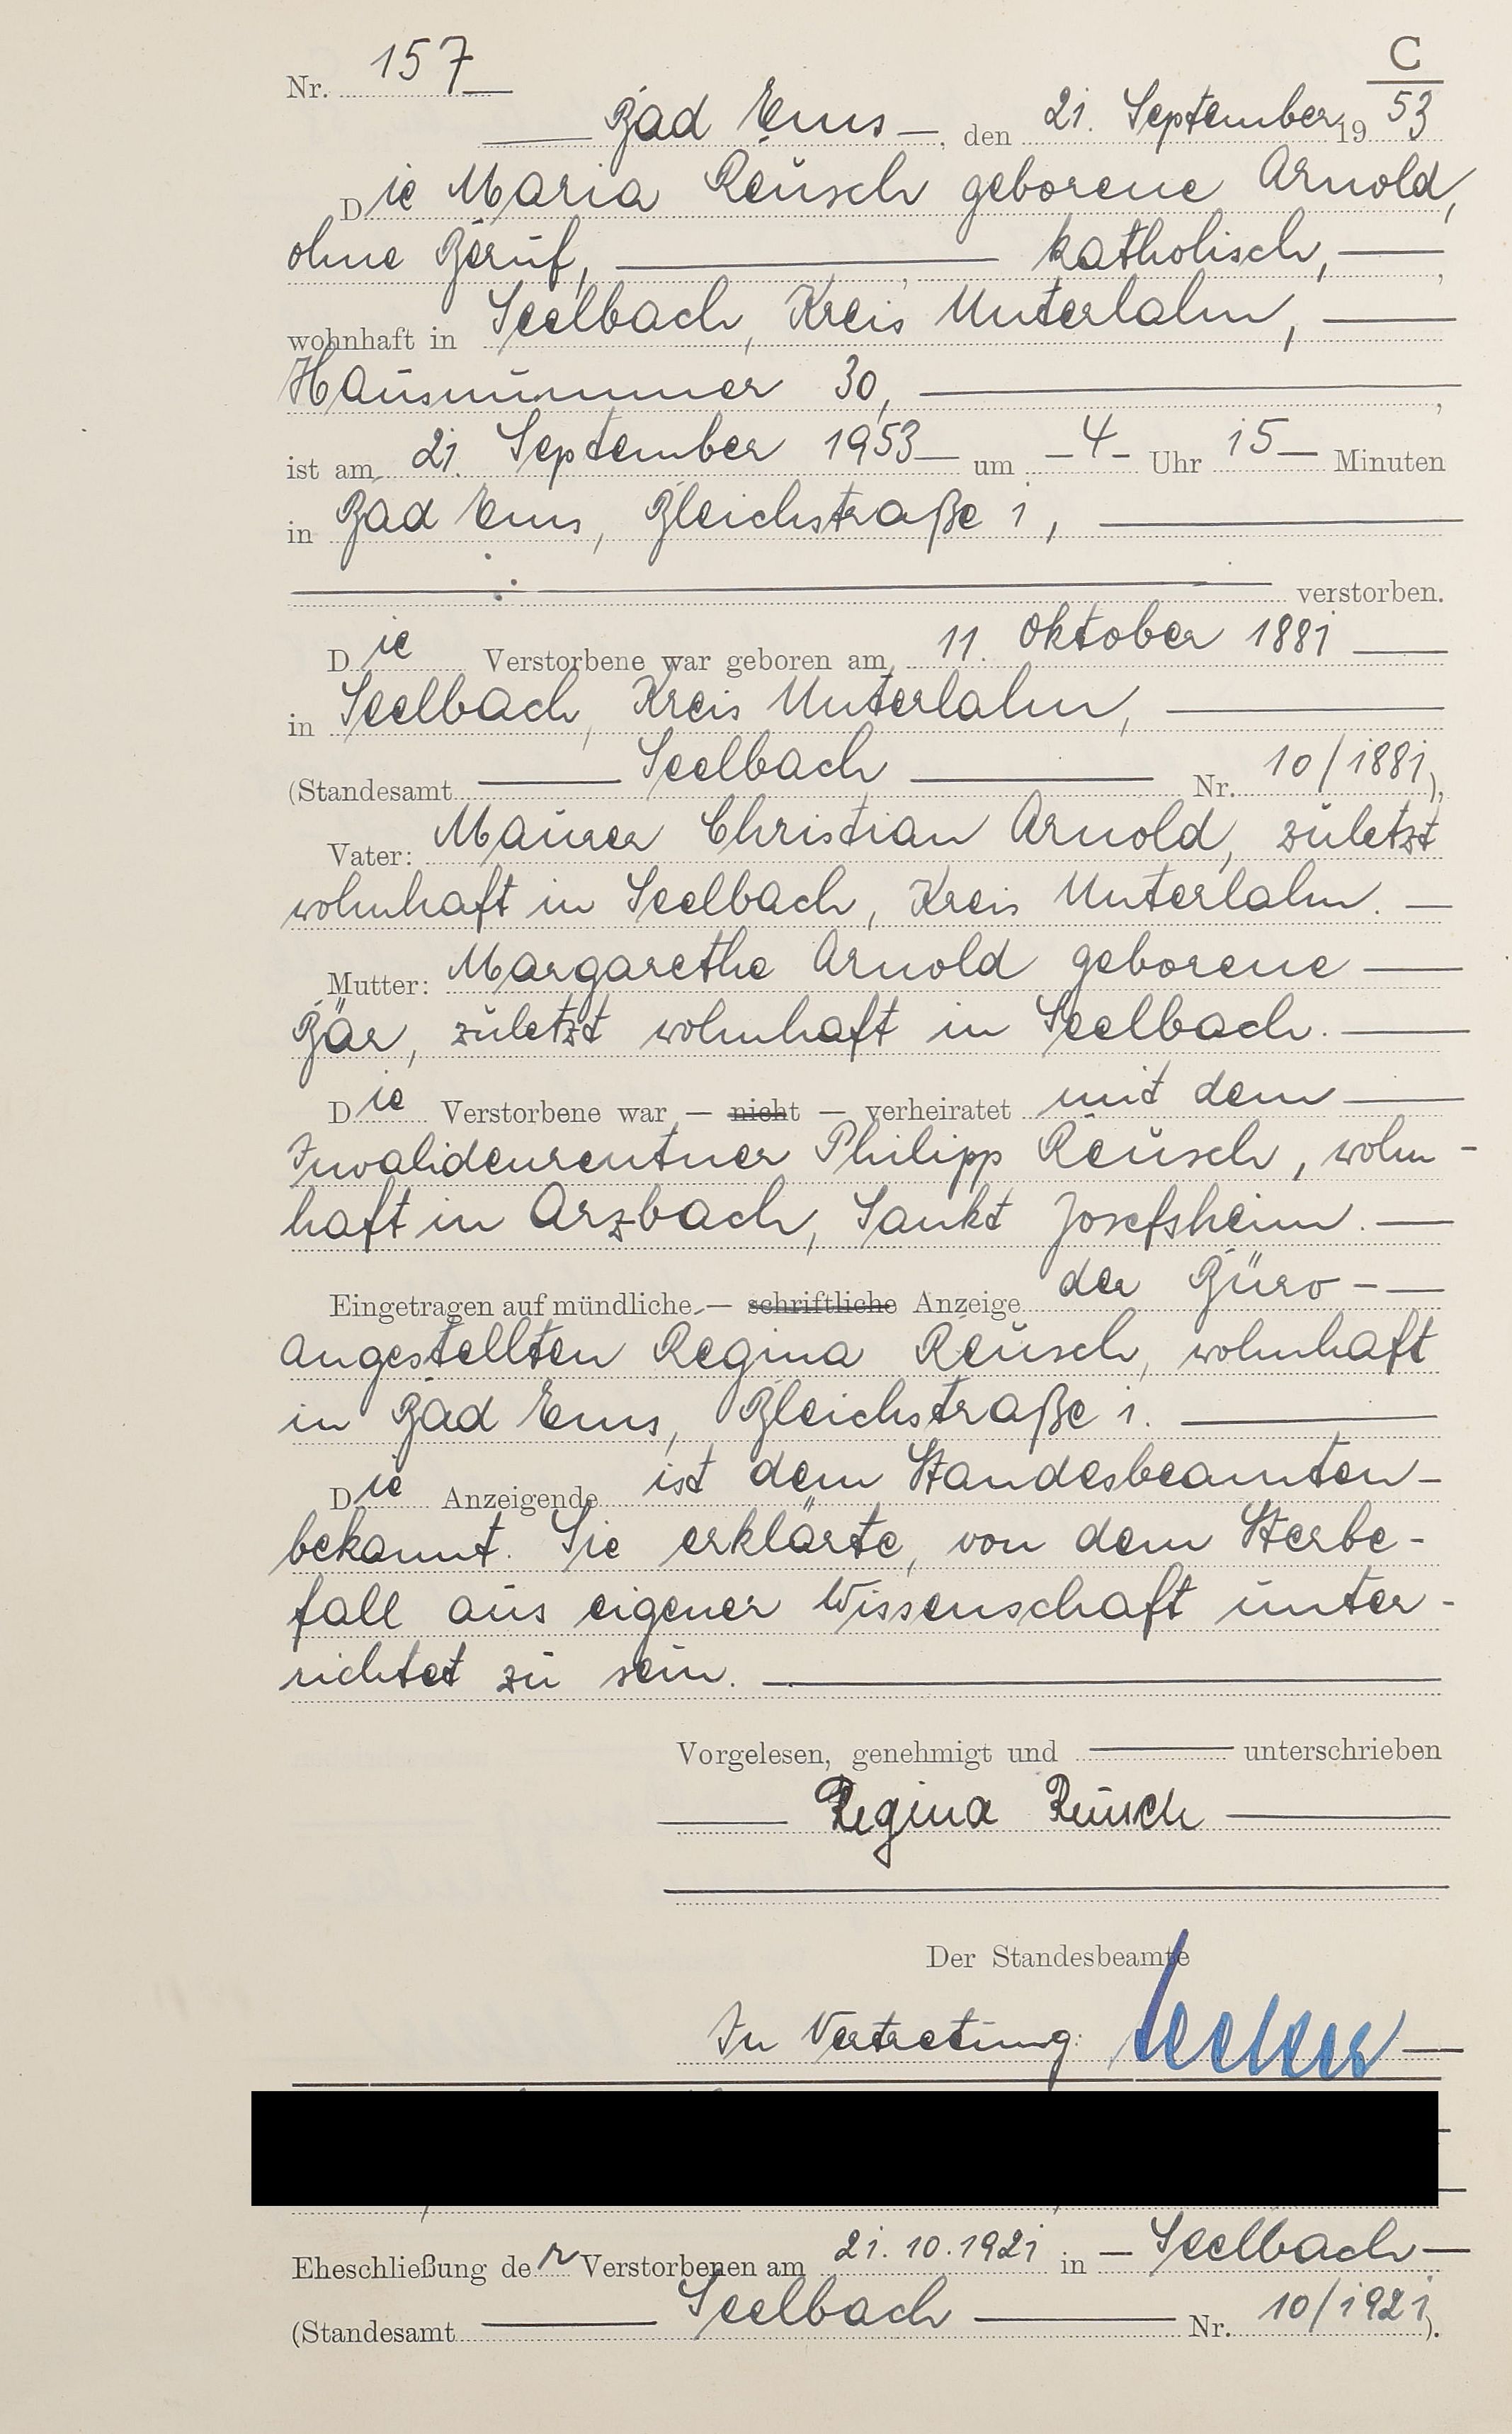 C
Nr. 157
Bad Ems, den 21. September 1953
Die Maria Reusch geborene Arnold,
ohne Beruf, katholisch,
wohnhaft in Seelbach, Kreis Unterlahn,
Hausnummer 30,
ist am 21. September 1953 um 4 Uhr 15 Minuten
in Bad Ems, Bleichstraße 1,
verstorben.
Die Verstorbene war geboren am 11. Oktober 1881
in Seelbach, Kreis Unterlahn,
(Standesamt Seelbach Nr. 10/1881),
Vater: Maurer Christian Arnold, zuletzt
wohnhaft in Seelbach, Kreis Unterlahn.
Mutter: Margarethe Arnold geborene
Bär, zuletzt wohnhaft in Seelbach.
Die Verstorbene war – nicht – verheiratet mit dem
Invalidenrentner Philipp Reusch, wohn-
haft in Arzbach, Sankt Josefsheim.
Eingetragen auf mündliche – schriftliche Anzeige der Büro-
angestellten Regina Reusch, wohnhaft
in Bad Ems, Bleichstraße 1.
Die Anzeigende ist dem Standesbeamten
bekannt. Sie erklärte, von dem Sterbe-
fall aus eigener Wissenschaft unter-
richtet zu sein.
Vorgelesen, genehmigt und unterschrieben
Regina Reusch
Der Standesbeamte
In Vertretung:
Eheschließung der Verstorbenen am 21.10.1921 in Seelbach
(Standesamt Seelbach Nr. 10/1921).